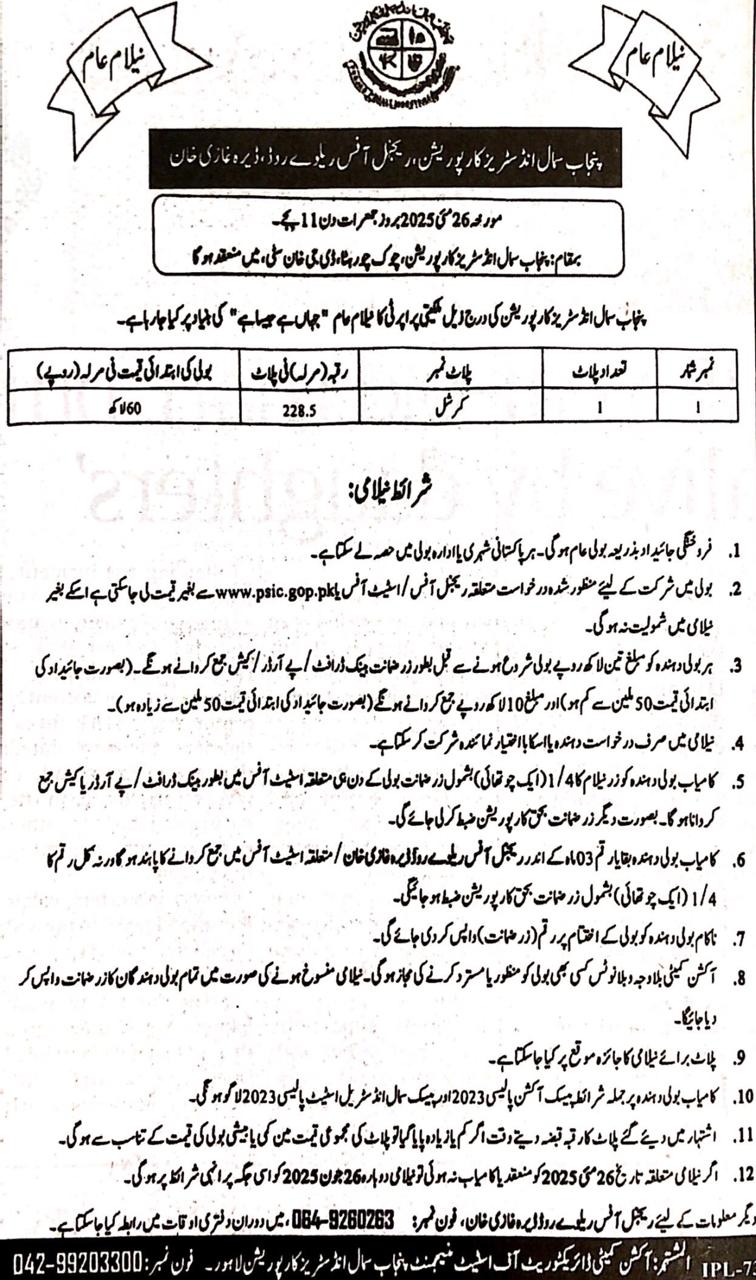 نیلام عام
نیلام عام
پنجاب سمال انڈسٹریز کارپوریشن، ریجنل آفس ریلوے روڈ، ڈیرہ غازی خان
مورخہ 26 مئی 2025 بروز جمعرات دن 11 بجے۔
بمقام: پنجاب سمال انڈسٹریز کارپوریشن، چوک چورہٹا، ڈی جی خان سٹی، میں منعقد ہوگا
پنجاب سمال انڈسٹریز کارپوریشن کی درج ذیل ملکیتی پراپرٹی کا نیلام عام "جہاں ہے جیسا ہے" کی بنیاد پر کیا جا رہا ہے۔
نمبر شمار تعداد پلاٹ پلاٹ نمبر رقبہ (مرلہ) فی پلاٹ بولی کی ابتدائی قیمت فی مرلہ (روپے)
1 1 کمرشل 228.5 60 لاکھ
شرائط نیلامی:
1. فروختگی جائیداد بذریعہ بولی عام ہوگی۔ ہر پاکستانی شہری یا ادارہ بولی میں حصہ لے سکتا ہے۔
2. بولی میں شرکت کے لیئے منظور شدہ درخواست متعلقہ ریجنل آفس / اسٹیٹ آفس یا www.psic.gop.pk سے بغیر قیمت لی جا سکتی ہے اسکے بغیر
نیلامی میں شمولیت نہ ہوگی۔
3. ہر بولی دہندہ کو مبلغ تین لاکھ روپے بولی شروع ہونے سے قبل بطور زر ضمانت بینک ڈرافٹ / پے آرڈر / کیش جمع کروانے ہونگے۔ (بصورت جائیداد کی
ابتدائی قیمت 50 ملین سے کم ہو) اور مبلغ 10 لاکھ روپے جمع کروانے ہونگے (بصورت جائیداد کی ابتدائی قیمت 50 ملین سے زیادہ ہو)۔
4. نیلامی میں صرف درخواست دہندہ یا اسکا بااختیار نمائندہ شرکت کر سکتا ہے۔
5. کامیاب بولی دہندہ کو زر نیلام کا 1/4 (ایک چوتھائی) بشمول زر ضمانت بولی کے دن ہی متعلقہ اسٹیٹ آفس میں بطور بینک ڈرافٹ / پے آرڈر یا کیش جمع
کروانا ہوگا۔ بصورت دیگر زر ضمانت بحق کارپوریشن ضبط کر لی جائے گی۔
6. کامیاب بولی دہندہ بقایا رقم 03 ماہ کے اندر ریجنل آفس ریلوے روڈ ڈیرہ غازی خان / متعلقہ اسٹیٹ آفس میں جمع کروانے کا پابند ہوگا ورنہ کل رقم کا
1/4 (ایک چوتھائی) بشمول زر ضمانت بحق کارپوریشن ضبط ہو جائیگی۔
7. ناکام بولی دہندہ کو بولی کے اختتام پر رقم (زر ضمانت) واپس کر دی جائے گی۔
8. آکشن کمیٹی بلاوجہ و بلا نوٹس کسی بھی بولی کو منظور یا مسترد کرنے کی مجاز ہوگی۔ نیلامی منسوخ ہونے کی صورت میں تمام بولی دہندگان کا زر ضمانت واپس کر
دیا جائیگا۔
9. پلاٹ برائے نیلامی کا جائزہ موقع پر کیا جا سکتا ہے۔
10. کامیاب بولی دہندہ پر جملہ شرائط پیسک آکشن پالیسی 2023 اور پیسک سمال انڈسٹریل اسٹیٹ پالیسی 2023 لاگو ہونگی۔
11. اشتہار میں دیئے گئے پلاٹ کا رقبہ قبضہ دیتے وقت اگر کم یا زیادہ پایا گیا تو پلاٹ کی مجموعی قیمت میں کمی یا بیشی بولی کی قیمت کے تناسب سے ہوگی۔
12. اگر نیلامی متعلقہ تاریخ 26 مئی 2025 کو منعقد یا کامیاب نہ ہوئی تو نیلامی دوبارہ 26 جون 2025 کو اسی جگہ پر انہی شرائط پر ہوگی۔
دیگر معلومات کے لیئے ریجنل آفس ریلوے روڈ ڈیرہ غازی خان، فون نمبر: 064-9260263، میں دوران دفتری اوقات میں رابطہ کیا جا سکتا ہے۔
IPL-7 المشتہر: آکشن کمیٹی ڈائریکٹوریٹ آف اسٹیٹ منیجمنٹ پنجاب سمال انڈسٹریز کارپوریشن لاہور۔ فون نمبر: 042-99203300